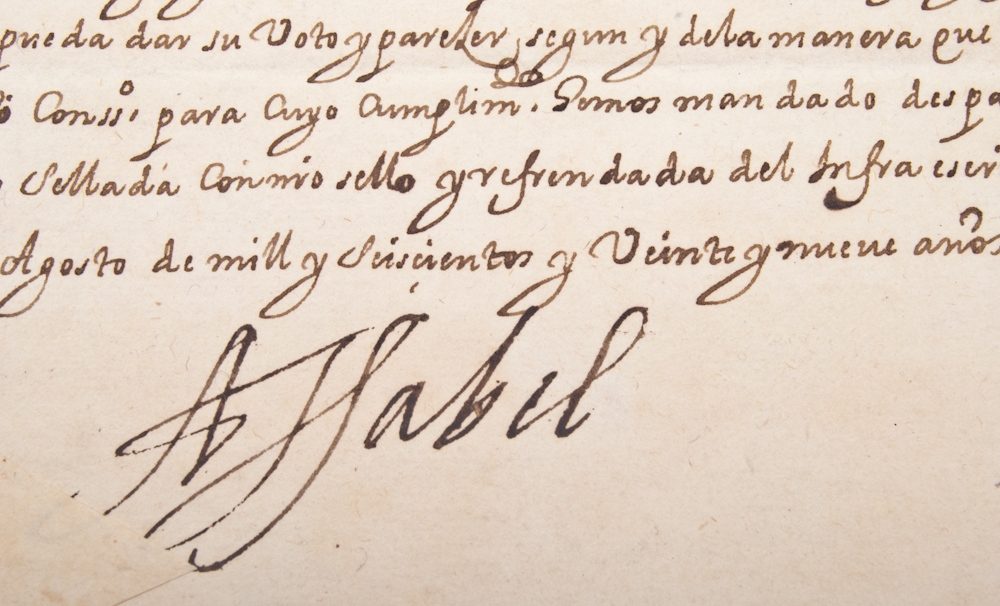 pueda dar su Voto y pareçer, segun y dela manera que
Conss.º para Cuyo Cumplim.to, hemos mandado despa
Sellada Con nro sello y refrendada del Infra escri
Agosto de mill y Seiscientos y Veinte y nueve años
A Isabel